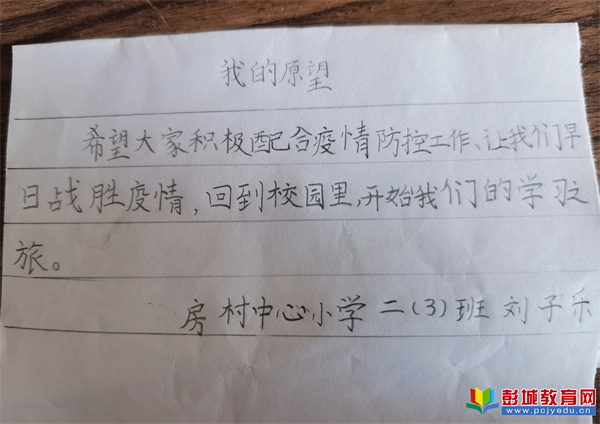 我的原望
希望大家积极配合疫情防控工作、让我们早
日战胜疫情，回到校园里，开始我们的学习之
旅。
房村中心小学二(3)班 刘子乐
彭城教育网
www.pcjyedu.cn